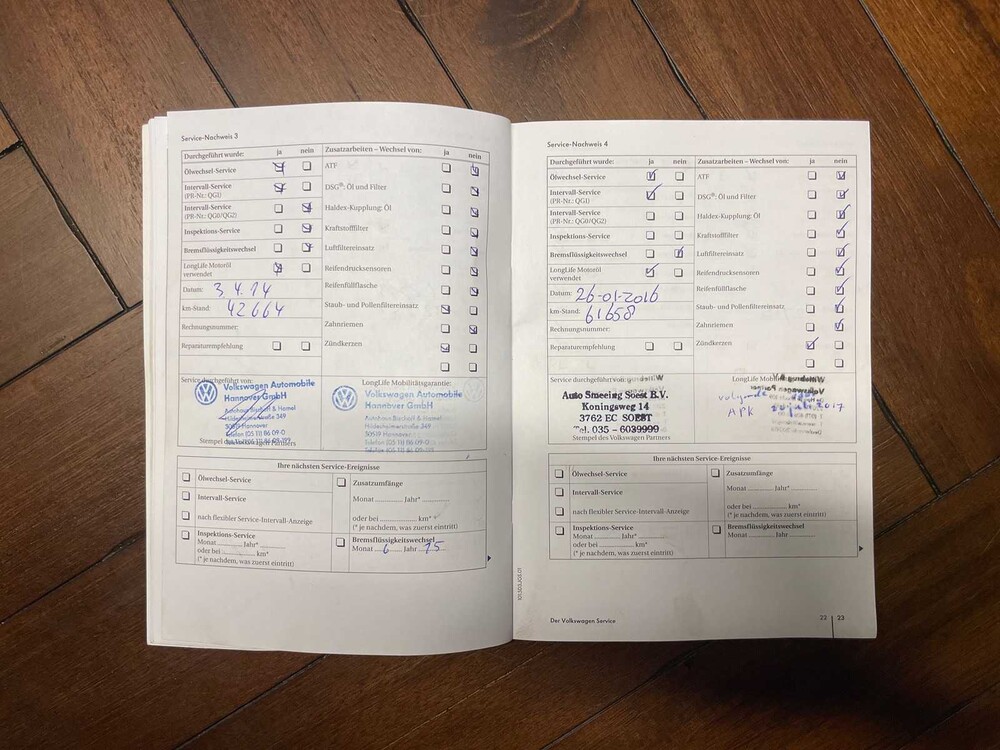 Service-Nachweis 3
Durchgeführt wurde: ja nein
Ölwechsel-Service
Intervall-Service
(PR-Nr.: QG1)
Intervall-Service
(PR-Nr.: QG0/QG2)
Inspektions-Service
Bremsflüssigkeitswechsel
LongLife Motoröl
verwendet
Datum: 3.4.14
km-Stand: 42664
Rechnungsnummer:
Reparaturempfehlung
Zusatzarbeiten – Wechsel von: ja nein
ATF
DSG®: Öl und Filter
Haldex-Kupplung: Öl
Kraftstofffilter
Luftfiltereinsatz
Reifendrucksensoren
Reifenfüllflasche
Staub- und Pollenfiltereinsatz
Zahnriemen
Zündkerzen
Service durchgeführt von:
Volkswagen Automobile
Hannover GmbH
Autohaus Bischoff & Hamel
Hildesheimerstraße 349
30519 Hannover
Telefon (05 11) 86 09-0
Stempel des Volkswagen Partners
LongLife Mobilitätsgarantie:
Volkswagen Automobile
Hannover GmbH
Autohaus Bischoff & Hamel
Hildesheimerstraße 349
30519 Hannover
Telefon (05 11) 86 09-0
Ihre nächsten Service-Ereignisse
Ölwechsel-Service
Intervall-Service
nach flexibler Service-Intervall-Anzeige
Inspektions-Service
Monat Jahr*
oder bei km*
(* je nachdem, was zuerst eintritt)
Zusatzumfänge
Monat Jahr*
oder bei km*
(* je nachdem, was zuerst eintritt)
Bremsflüssigkeitswechsel
Monat 6 Jahr 15
Service-Nachweis 4
Durchgeführt wurde: ja nein
Ölwechsel-Service
Intervall-Service
(PR-Nr.: QG1)
Intervall-Service
(PR-Nr.: QG0/QG2)
Inspektions-Service
Bremsflüssigkeitswechsel
LongLife Motoröl
verwendet
Datum: 26-01-2016
km-Stand: 61658
Rechnungsnummer:
Reparaturempfehlung
Zusatzarbeiten – Wechsel von: ja nein
ATF
DSG®: Öl und Filter
Haldex-Kupplung: Öl
Kraftstofffilter
Luftfiltereinsatz
Reifendrucksensoren
Reifenfüllflasche
Staub- und Pollenfiltereinsatz
Zahnriemen
Zündkerzen
Service durchgeführt von:
Auto Smeeing Soest B.V.
Koningsweg 14
3762 EC SOEST
Tel. 035 - 6039999
Stempel des Volkswagen Partners
LongLife
volgende
APK 2017
Ihre nächsten Service-Ereignisse
Ölwechsel-Service
Intervall-Service
nach flexibler Service-Intervall-Anzeige
Inspektions-Service
Monat Jahr*
oder bei km*
(* je nachdem, was zuerst eintritt)
Zusatzumfänge
Monat Jahr*
oder bei km*
(* je nachdem, was zuerst eintritt)
Bremsflüssigkeitswechsel
Monat Jahr
Der Volkswagen Service
22 23